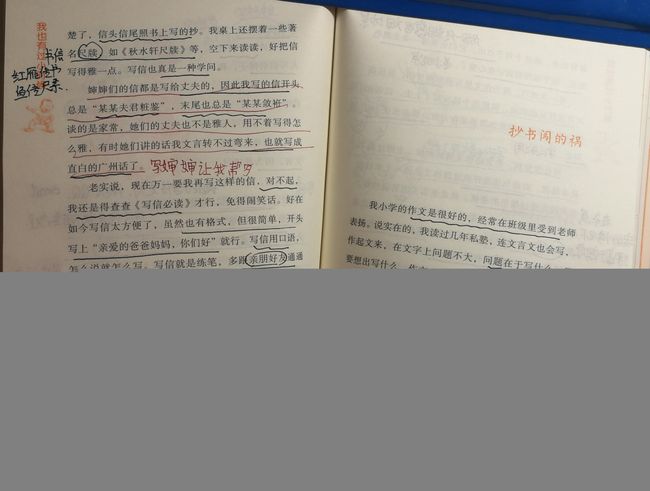 我也有过
书信
红雁传书
鱼传尺素
楚了，信头信尾照书上写的抄。我桌上还摆着一些著
名尺牍，如《秋水轩尺牍》等，空下来读读，好把信
写得雅一点。写信也真是一种学问。
婶婶们的信都是写给丈夫的，因此我写的信开头
总是“某某夫君粧鉴”，末尾也总是“某某敛衽”。
谈的是家常，她们的丈夫也不是雅人，用不着写得怎
么雅，有时她们讲的话我文言转不过弯来，也就写成
直白的广州话了。
婶婶让我帮
老实说，现在万一要我再写这样的信，对不起，
我还是得查查《写信必读》才行，免得闹笑话。好在
如今写信太方便了，虽然也有格式，但很简单，开头
写上“亲爱的爸爸妈妈，你们好”就行。写信用口语，
怎么说就怎么写。写信就是练笔，多跟亲朋好友通通
抄书闯的祸
我小学的作文是很好的，经常在班级里受到老师
表扬。说实在的，我读过几年私塾，连文言文也会写，
作起文来，在文字上问题不大，问题在于写什么
要想出写什么，作文